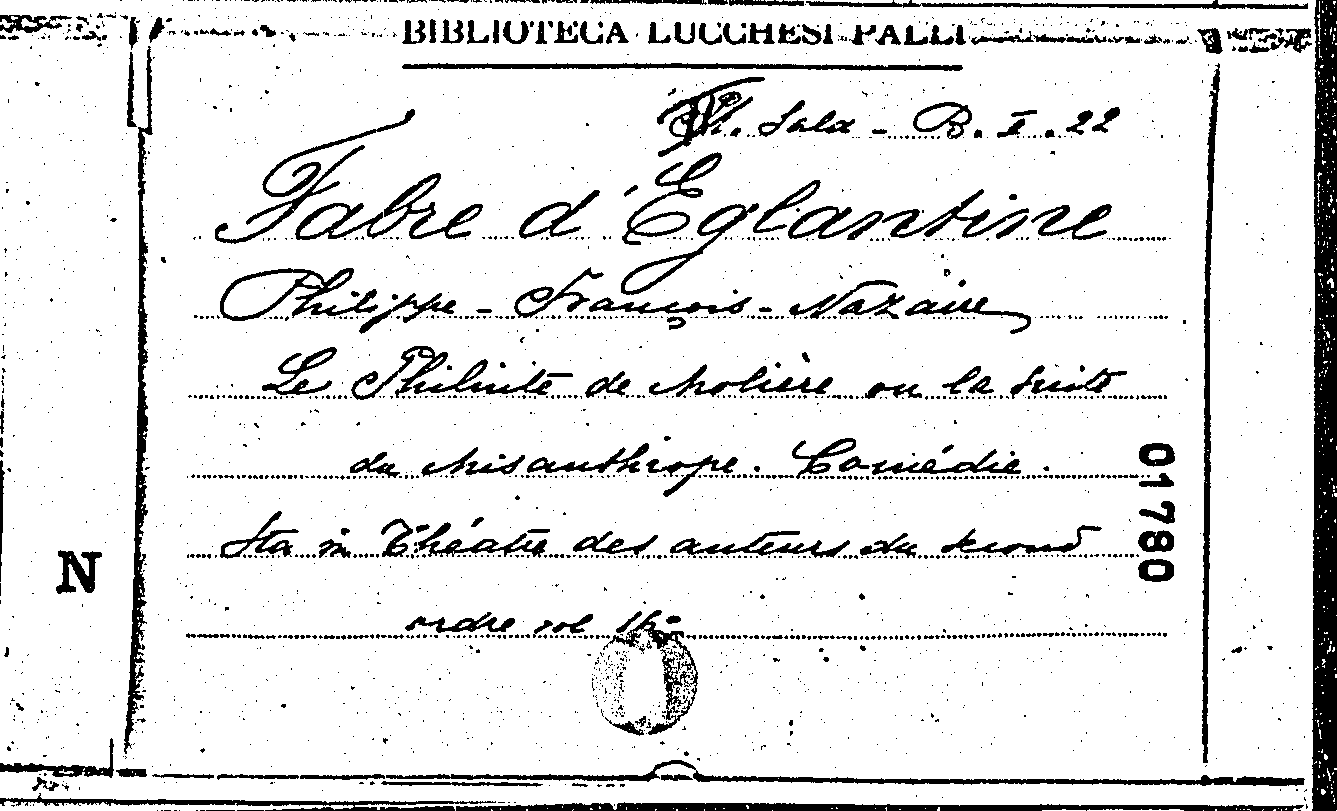 BIBLIOTECA LUCCHESI PALLI
Sala - B. I. 22
Fabre d'Eglantine
Philippe - François - Nazaire
Le Philinte de Molière ou la suite
du Misanthrope. Comédie.
Sta in Théatre des auteurs du second
ordre vol
01780
N